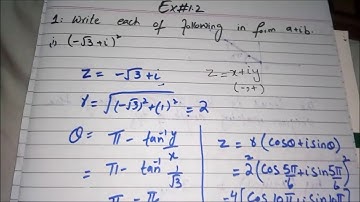 Ex#1.2
1: Write each of following in form a+ib.
i) (-√3+i)²
z = -√3+i
z=x+iy
(-,+)
r = √((-√3)²+(1)²) = 2
θ = π - tan⁻¹ y/x
= π - tan⁻¹ 1/√3
= π - π
z = r(cosθ+isinθ)
= 2²(cos 5π/6 + isin 5π/6)²
=4[cos 10π + isin 10π]